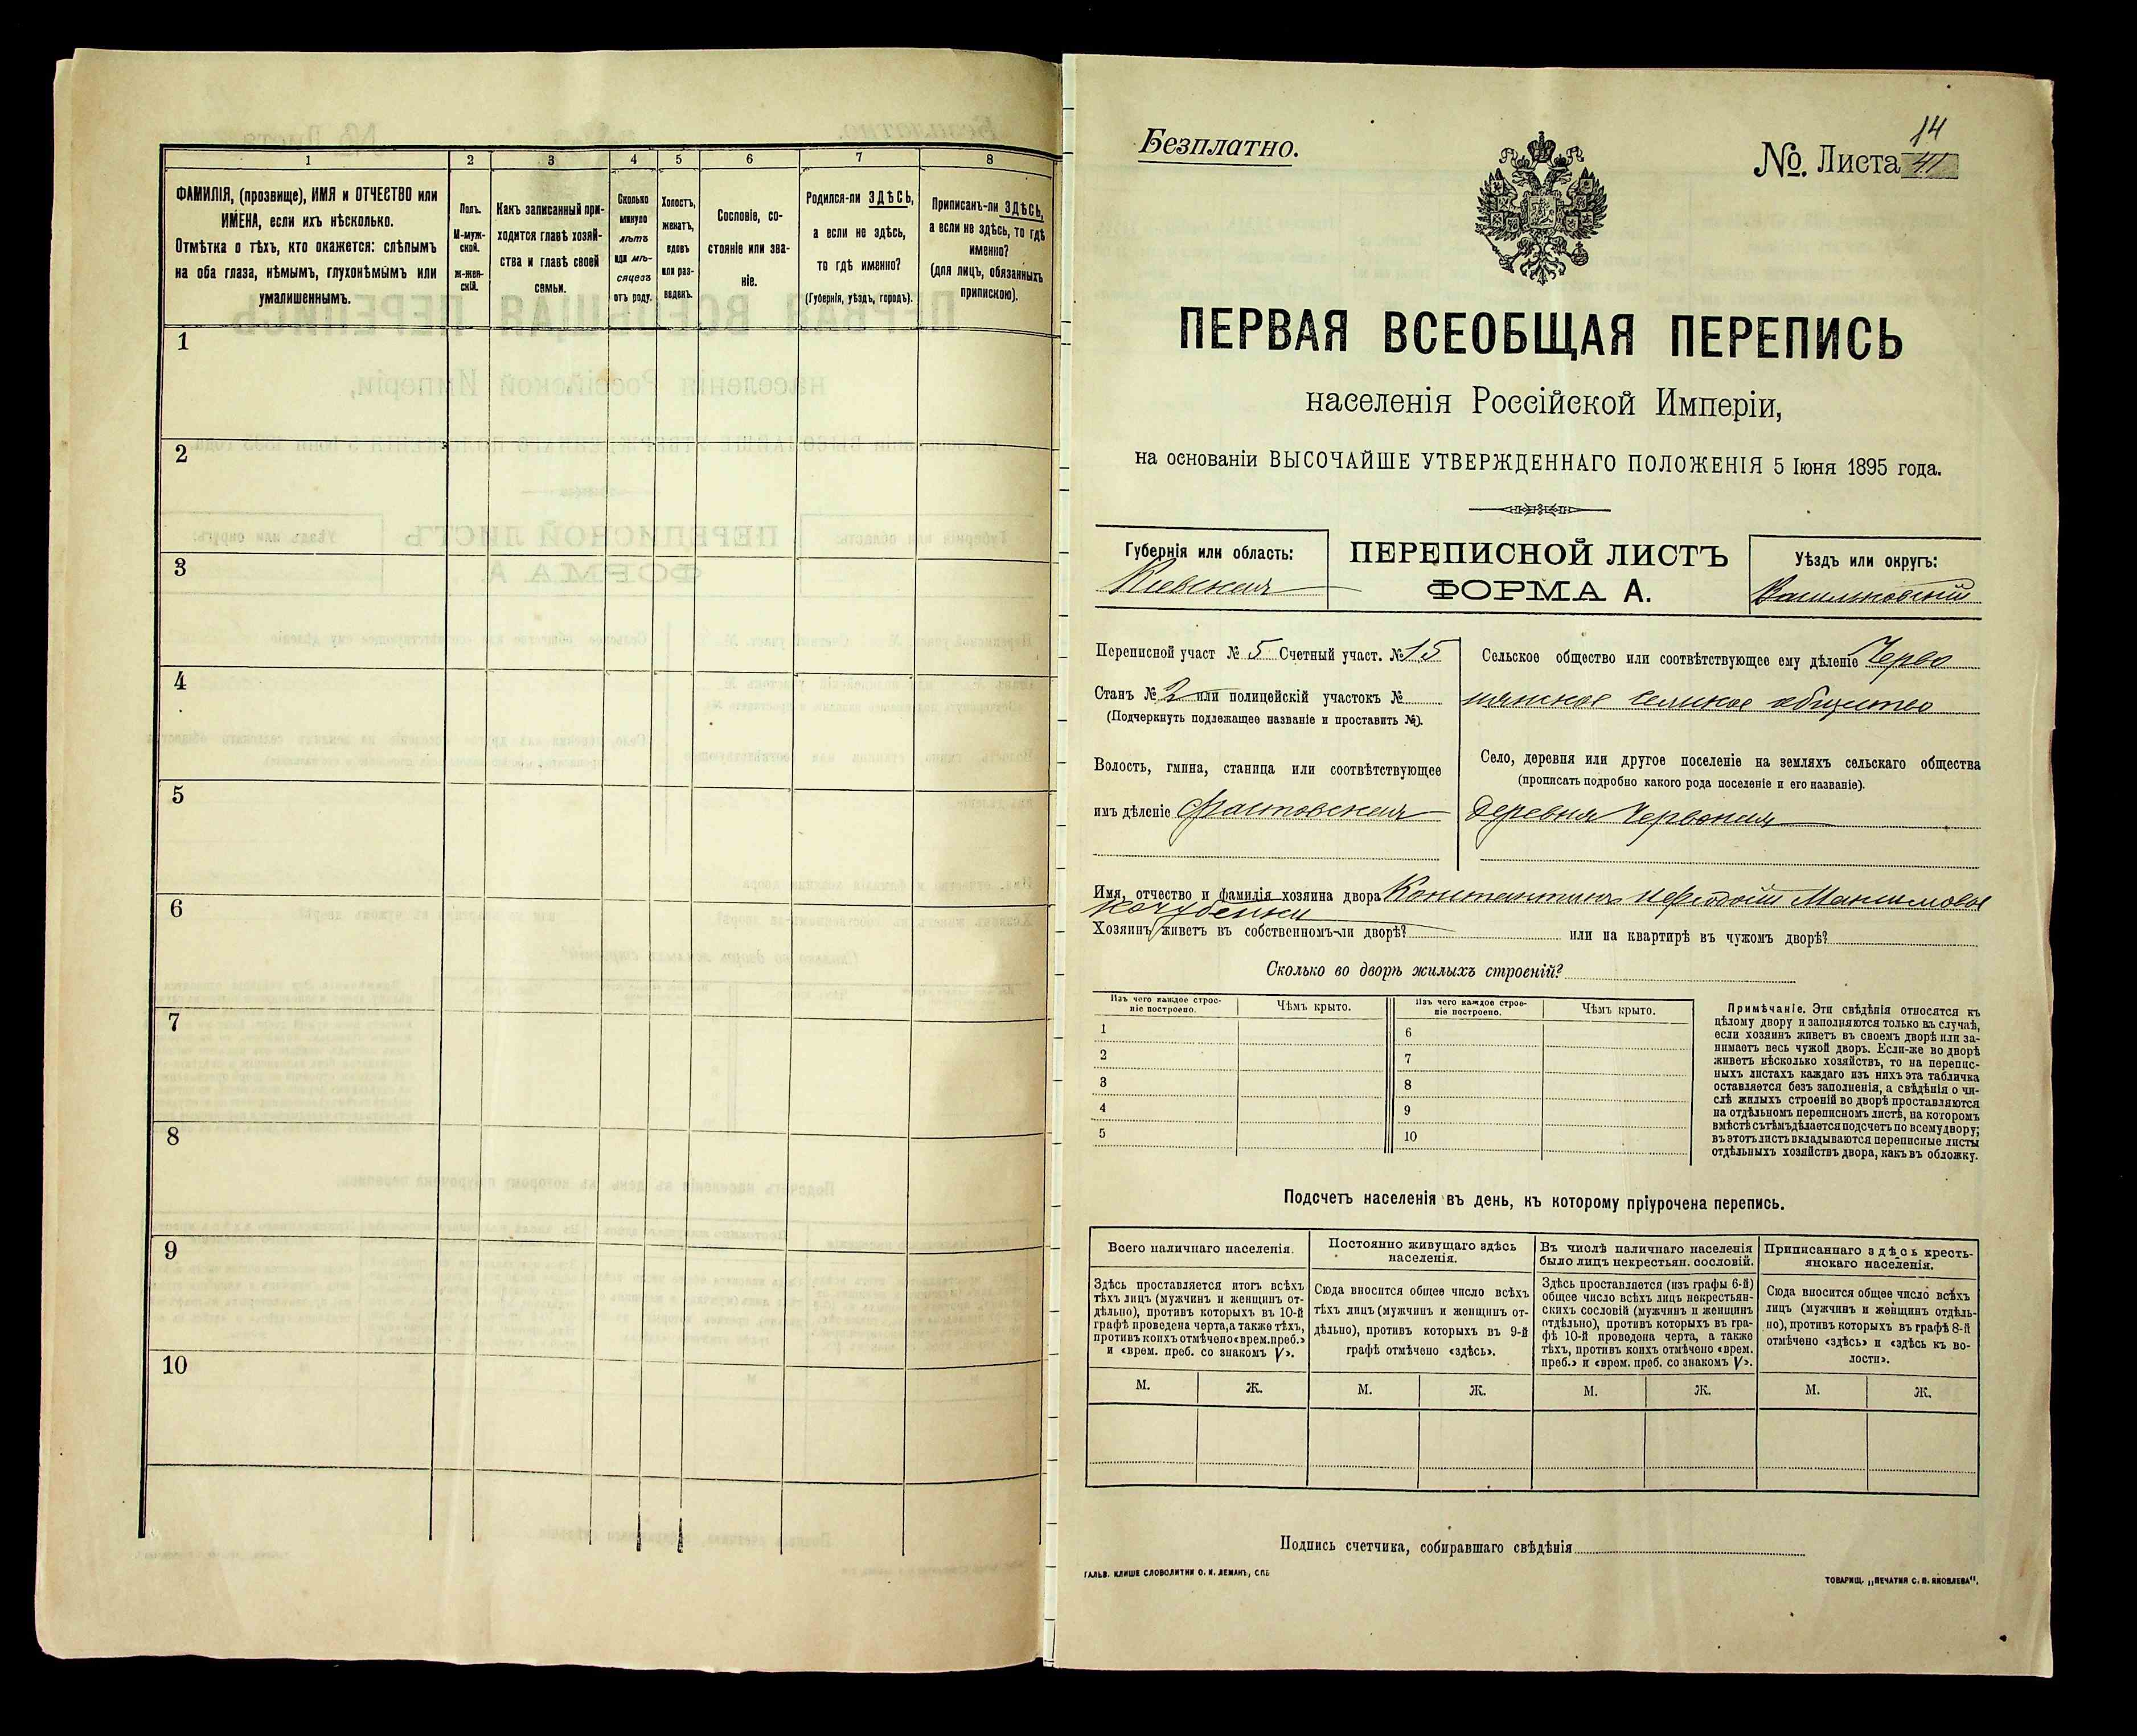 1 2 3 4 5 6 7 8
ФАМИЛІЯ, (прозвище), ИМЯ и ОТЧЕСТВО или
ИМЕНА, если ихъ нѣсколько.
Отмѣтка о тѣхъ, кто окажется: слѣпымъ
на оба глаза, нѣмымъ, глухонѣмымъ или
умалишеннымъ.
Полъ.
М-муж-
ской.
Ж-жен-
скій.
Какъ записанный при-
ходится главѣ хозяй-
ства и главѣ своей
семьи.
Сколько
минуло
лѣтъ
или мѣ-
сяцевъ
отъ роду.
Холостъ,
женатъ,
вдовъ
или раз-
веденъ.
Сословіе, со-
стояніе или зва-
ніе.
Родился-ли ЗДѢСЬ,
а если не здѣсь,
то гдѣ именно?
(Губернія, уѣздъ, городъ).
Приписанъ-ли ЗДѢСЬ,
а если не здѣсь, то гдѣ
именно?
(для лицъ, обязанныхъ
припискою).
1
2
3
4
5
6
7
8
9
10
14
Безплатно.
№. Листа 41
ПЕРВАЯ ВСЕОБЩАЯ ПЕРЕПИСЬ
населенія Россійской Имперіи,
на основаніи ВЫСОЧАЙШЕ УТВЕРЖДЕННАГО ПОЛОЖЕНІЯ 5 Іюня 1895 года.
Губернія или область:
Кіевская
ПЕРЕПИСНОЙ ЛИСТЪ
ФОРМА А.
Уѣздъ или округъ:
Васильковскій
Переписной участ № 5 Счетный участ. № 15
Станъ № 2 или полицейскій участокъ №
(Подчеркнуть подлежащее названіе и проставить №).
Волость, гмина, станица или соотвѣтствующее
имъ дѣленіе Фастовская
Сельское общество или соотвѣтствующее ему дѣленіе Черво
нянское сельское общество
Село, деревня или другое поселеніе на земляхъ сельскаго общества
(прописать подробно какого рода поселеніе и его названіе).
деревня Червоная
Имя, отчество и фамилія хозяина двора Константинъ Максимовъ
Хозяинъ живетъ въ собственномъ-ли дворѣ? или на квартирѣ въ чужомъ дворѣ?
Сколько во дворѣ жилыхъ строеній?
Изъ чего каждое строе-
ніе построено.
Чѣмъ крыто.
Изъ чего каждое строе-
ніе построено.
Чѣмъ крыто.
1 6
2 7
3 8
4 9
5 10
Примѣчаніе. Эти свѣдѣнія относятся къ
цѣлому двору и заполняются только въ случаѣ,
если хозяинъ живетъ въ своемъ дворѣ или за-
нимаетъ весь чужой дворъ. Если-же во дворѣ
живетъ нѣсколько хозяйствъ, то на перепис-
ныхъ листахъ каждаго изъ нихъ эта табличка
оставляется безъ заполненія, а свѣдѣнія о чи-
слѣ жилыхъ строеній во дворѣ проставляются
на отдѣльномъ переписномъ листѣ, на которомъ
вмѣстѣ съ тѣмъ дѣлается подсчетъ по всему двору;
въ этотъ листъ вкладываются переписные листы
отдѣльныхъ хозяйствъ двора, какъ въ обложку.
Подсчетъ населенія въ день, къ которому пріурочена перепись.
Всего наличнаго населенія.
Здѣсь проставляется итогъ всѣхъ
тѣхъ лицъ (мужчинъ и женщинъ от-
дѣльно), противъ которыхъ въ 10-й
графѣ проведена черта, а также тѣхъ,
противъ коихъ отмѣчено «врем. преб.»
и «врем. преб. со знакомъ V».
Постоянно живущаго здѣсь
населенія.
Сюда вносится общее число всѣхъ
тѣхъ лицъ (мужчинъ и женщинъ от-
дѣльно), противъ которыхъ въ 9-й
графѣ отмѣчено «здѣсь».
Въ числѣ наличнаго населенія
было лицъ некрестьян. сословій.
Здѣсь проставляется (изъ графы 6-й)
общее число всѣхъ лицъ некрестьян-
скихъ сословій (мужчинъ и женщинъ
отдѣльно), противъ которыхъ въ гра-
фѣ 10-й проведена черта, а также
тѣхъ, противъ коихъ отмѣчено «врем.
преб.» и «врем. преб. со знакомъ V».
Приписаннаго здѣсь кресть-
янскаго населенія.
Сюда вносится общее число всѣхъ
лицъ (мужчинъ и женщинъ отдѣль-
но), противъ которыхъ въ графѣ 8-й
отмѣчено «здѣсь» и «здѣсь къ во-
лости».
М. Ж. М. Ж. М. Ж. М. Ж.
Подпись счетчика, собиравшаго свѣдѣнія
ГАЛЬВ. КЛИШЕ СЛОВОЛИТНИ О. И. ЛЕМАНЪ, СПБ
ТОВАРИЩ. „ПЕЧАТНЯ С. П. ЯКОВЛЕВА“.